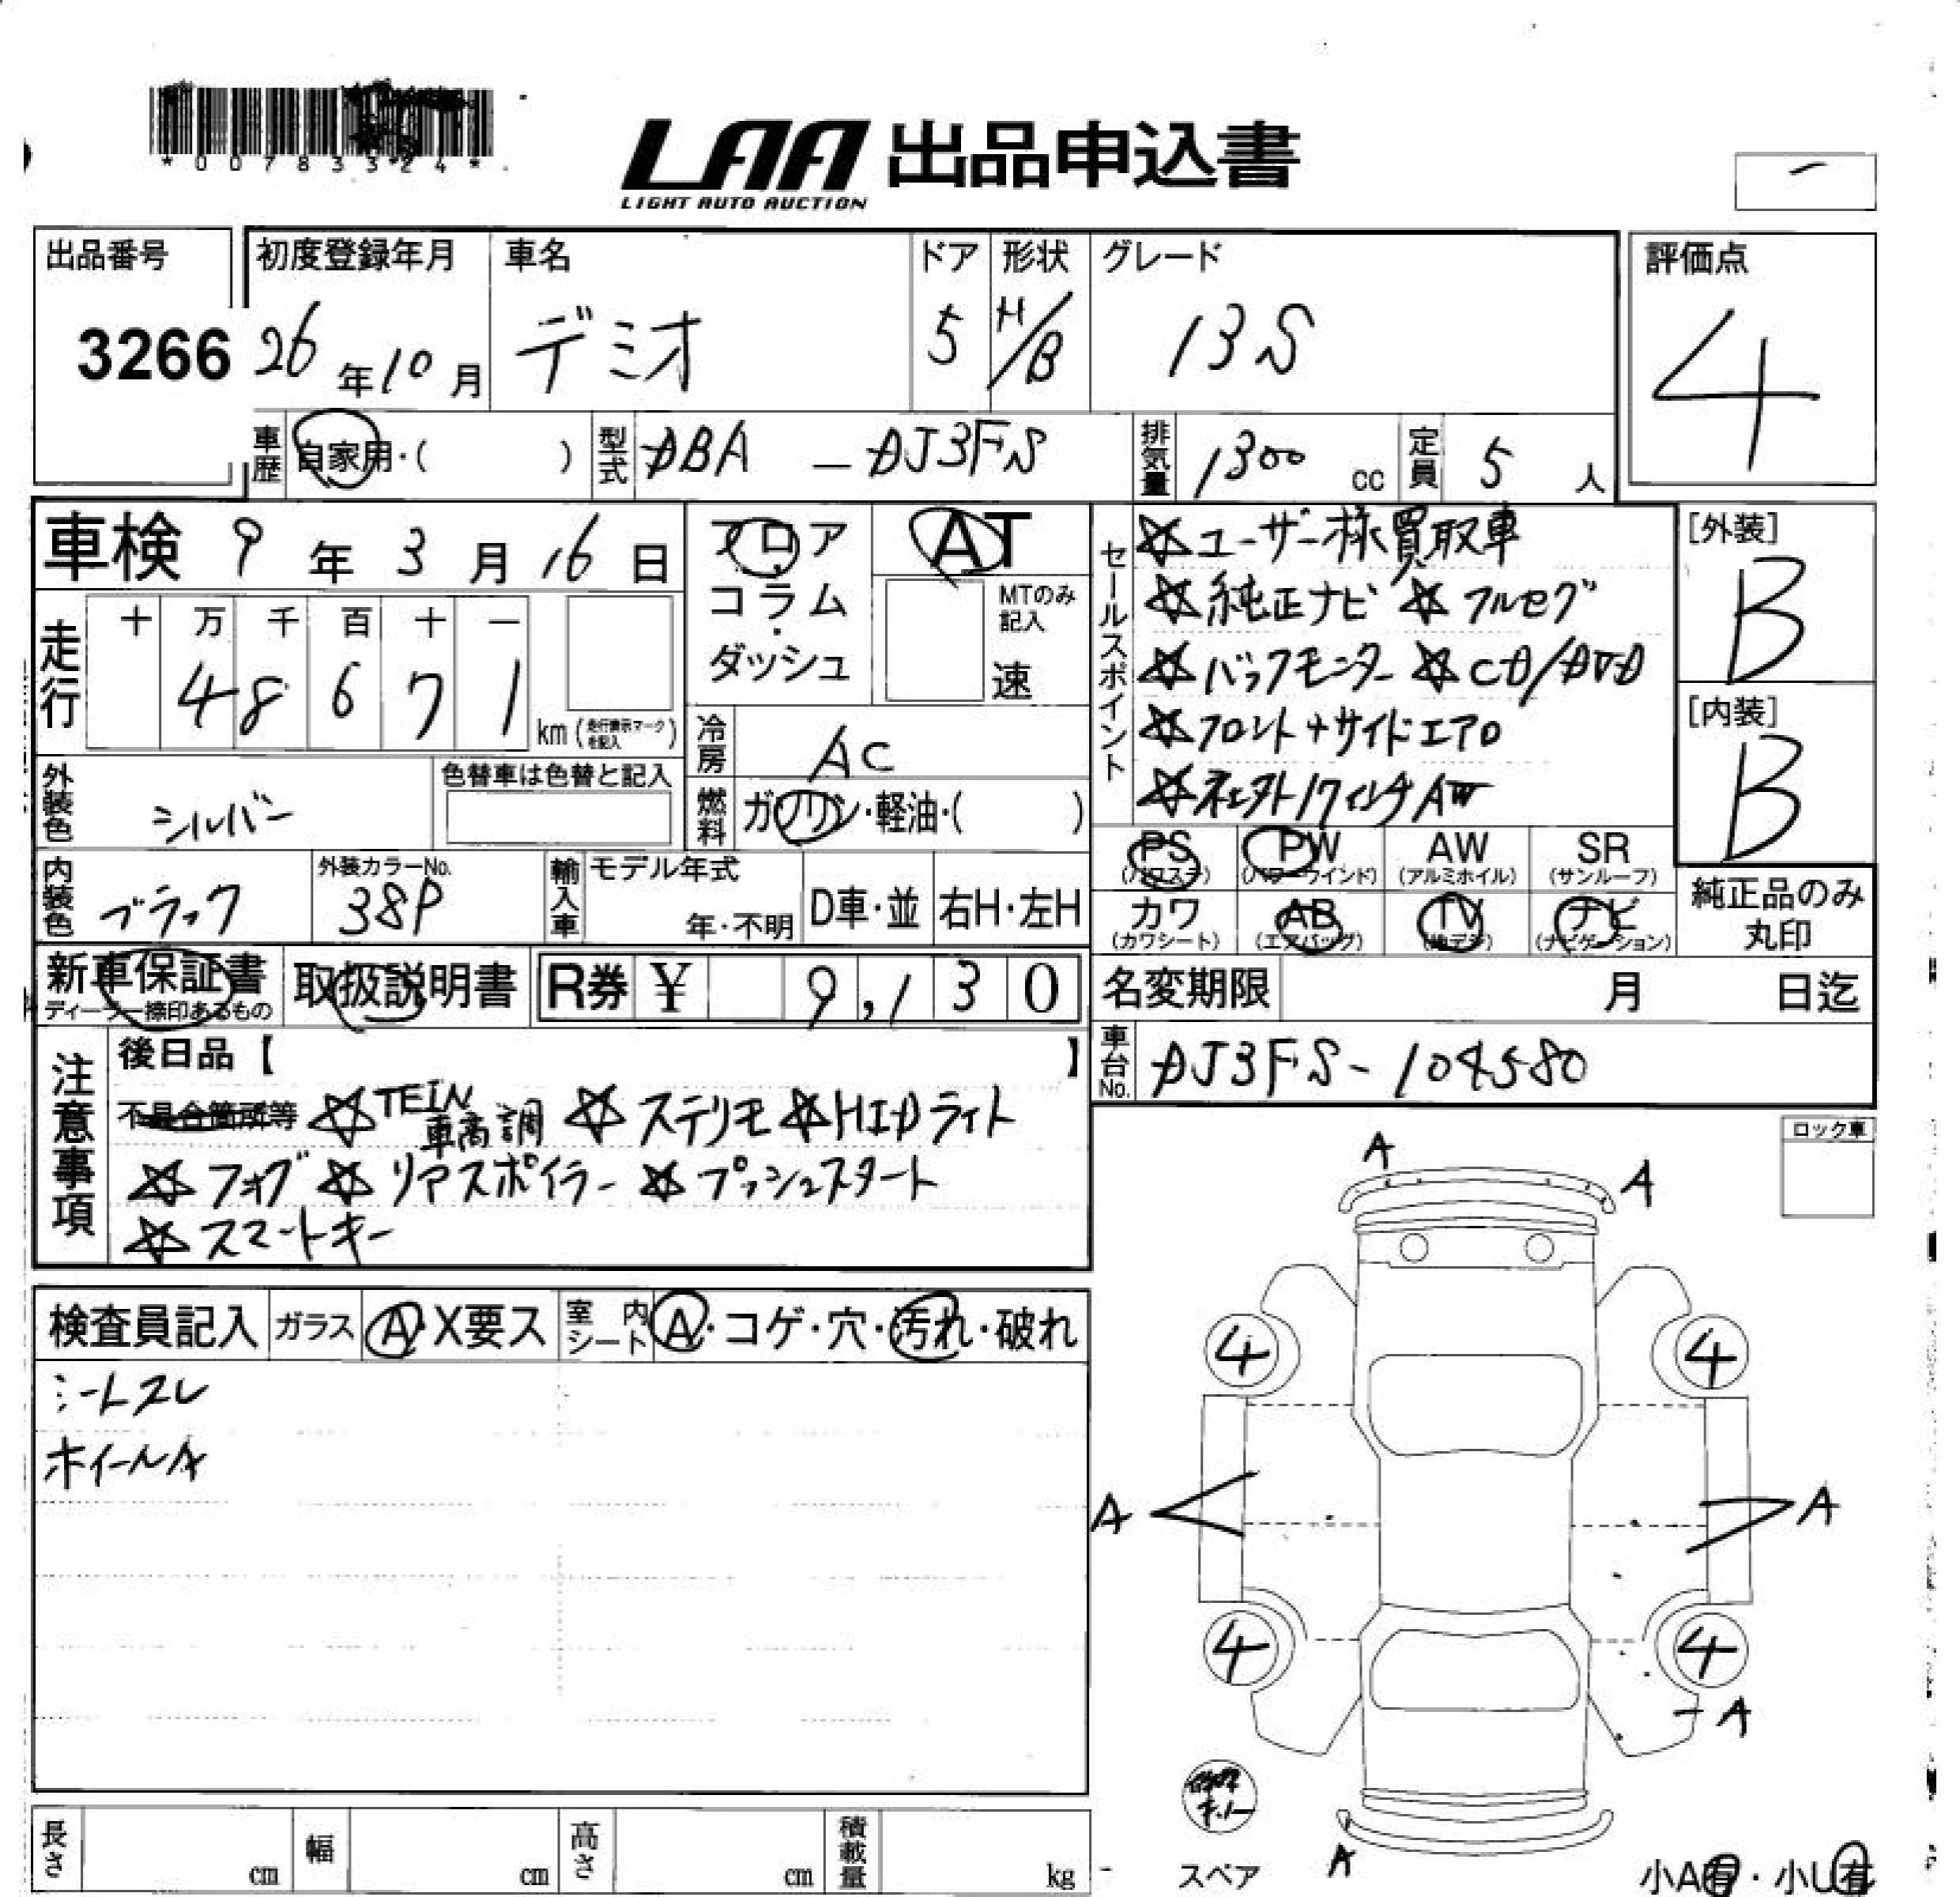 *00783324*
LAA 出品申込書
LIGHT AUTO AUCTION
出品番号 初度登録年月 車名 ドア 形状 グレード 評価点
3266 26年10月 デミオ 5 H/B 13S 4
車歴 自家用・( ) 型式 DBA - DJ3FS 排気量 1300 cc 定員 5 人
車検 9年3月16日 フロア AT
コラム・ MTのみ記入
ダッシュ 速
走行 十 万 千 百 十 一
4 8 6 7 1 km (走行表示マークを記入)
冷房 AC
外装色 シルバー 色替車は色替と記入 燃料 ガソリン・軽油・( )
内装色 ブラック 外装カラーNo. 38P 輸入車 モデル年式 年・不明 D車・並 右H・左H
セールスポイント ☆ユーザー様買取車
☆純正ナビ ☆フルセグ
☆バックモニター ☆CD/DVD
☆フロント+サイドエアロ
☆社外17インチAW
[外装] B
[内装] B
PS (パワステ) PW (パワーウインド) AW (アルミホイル) SR (サンルーフ)
カワ (カワシート) AB (エアバッグ) TV (地デジ) ナビ (ナビゲーション)
純正品のみ
丸印
新車保証書 取扱説明書 R券 ¥ 9,130
ディーラー捺印あるもの
名変期限 月 日迄
車台No. DJ3FS-104580
注意事項 後日品【 】
不具合箇所等 ☆TEIN車高調 ☆ステリモ ☆HIDライト
☆フォグ ☆リアスポイラー ☆プッシュスタート
☆スマートキー
ロック車
検査員記入 ガラス A・X要ス 室内シート A・コゲ・穴・汚れ・破れ
シートスレ
ホイールA
A A
4 4
A A
4 4
A
A
スペア
小A有・小U有
長さ cm 幅 cm 高さ cm 積載量 kg